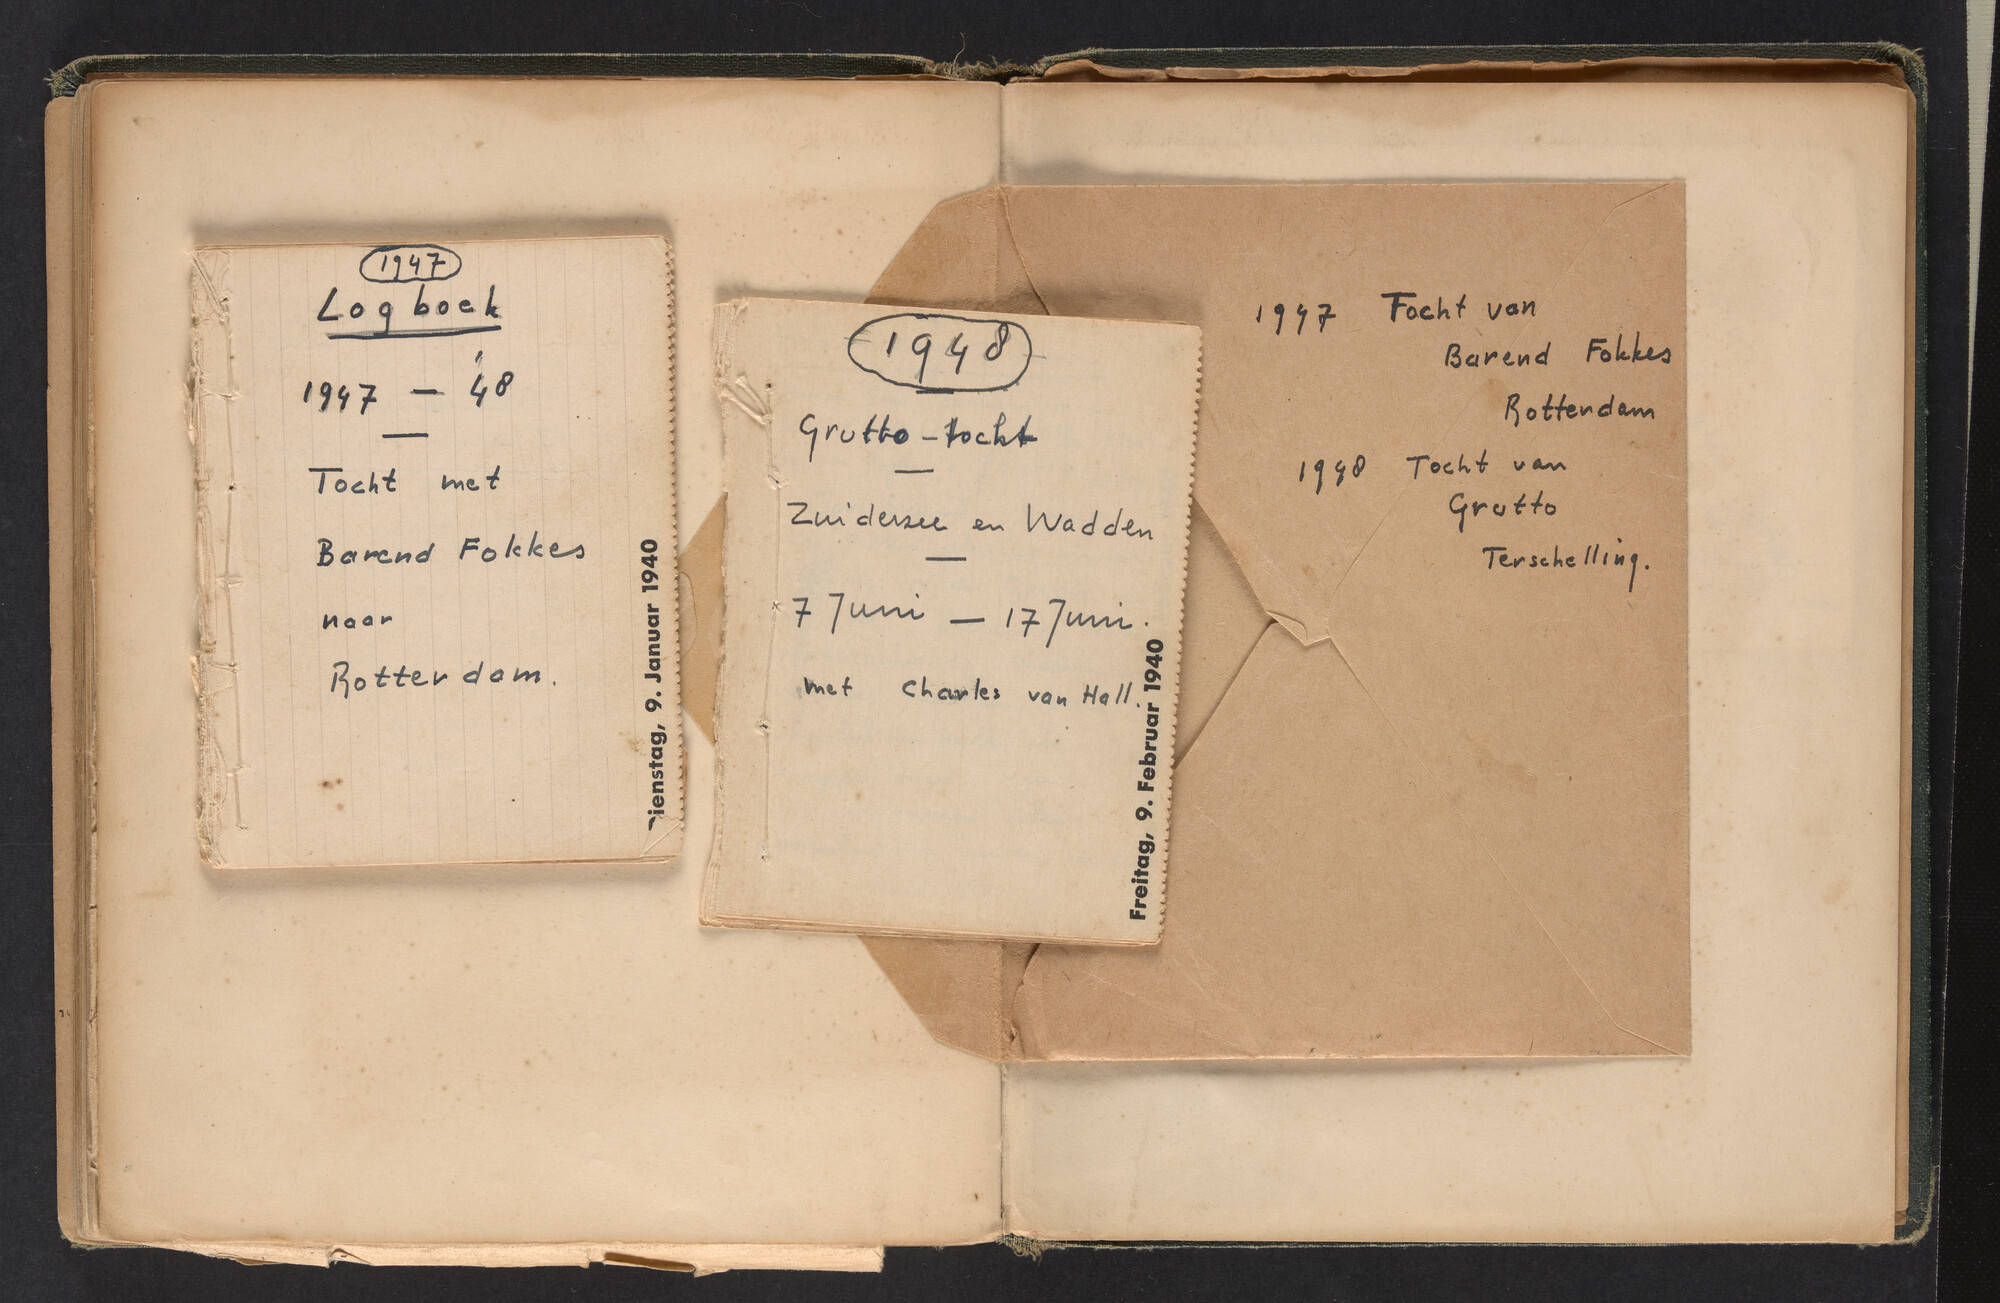 1947
Logboek
1947 — '48
Tocht met
Barend Fokkes
naar
Rotterdam.
Dienstag, 9. Januar 1940
1948
Grutto-tocht
Zuiderzee en Wadden
7 Juni — 17 Juni.
met Charles van Hall.
Freitag, 9. Februar 1940
1947 Tocht van
Barend Fokkes
Rotterdam
1948 Tocht van
Grutto
Terschelling.